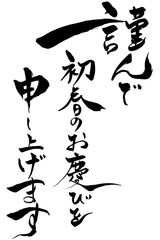 謹んで
初春のお慶びを
申し上げます